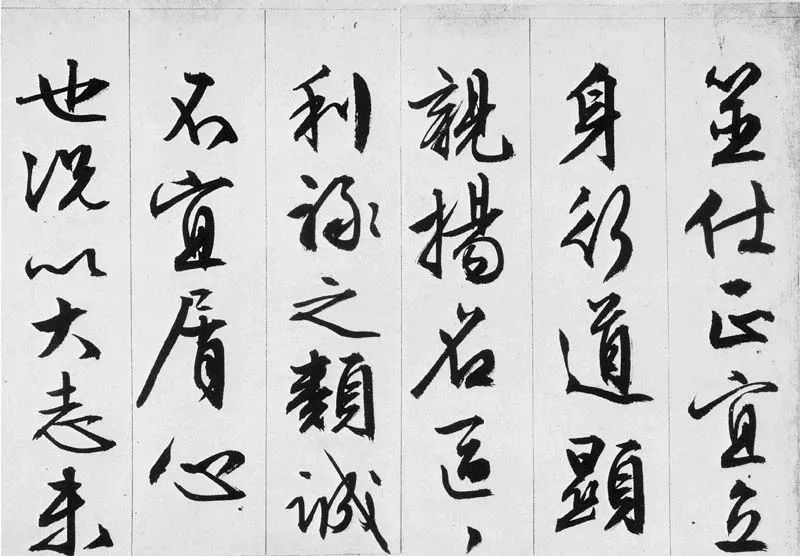 筮仕正宜立
身行道顯
親揚名區〻
利祿之類誠
不宜屑心
也況以大志未